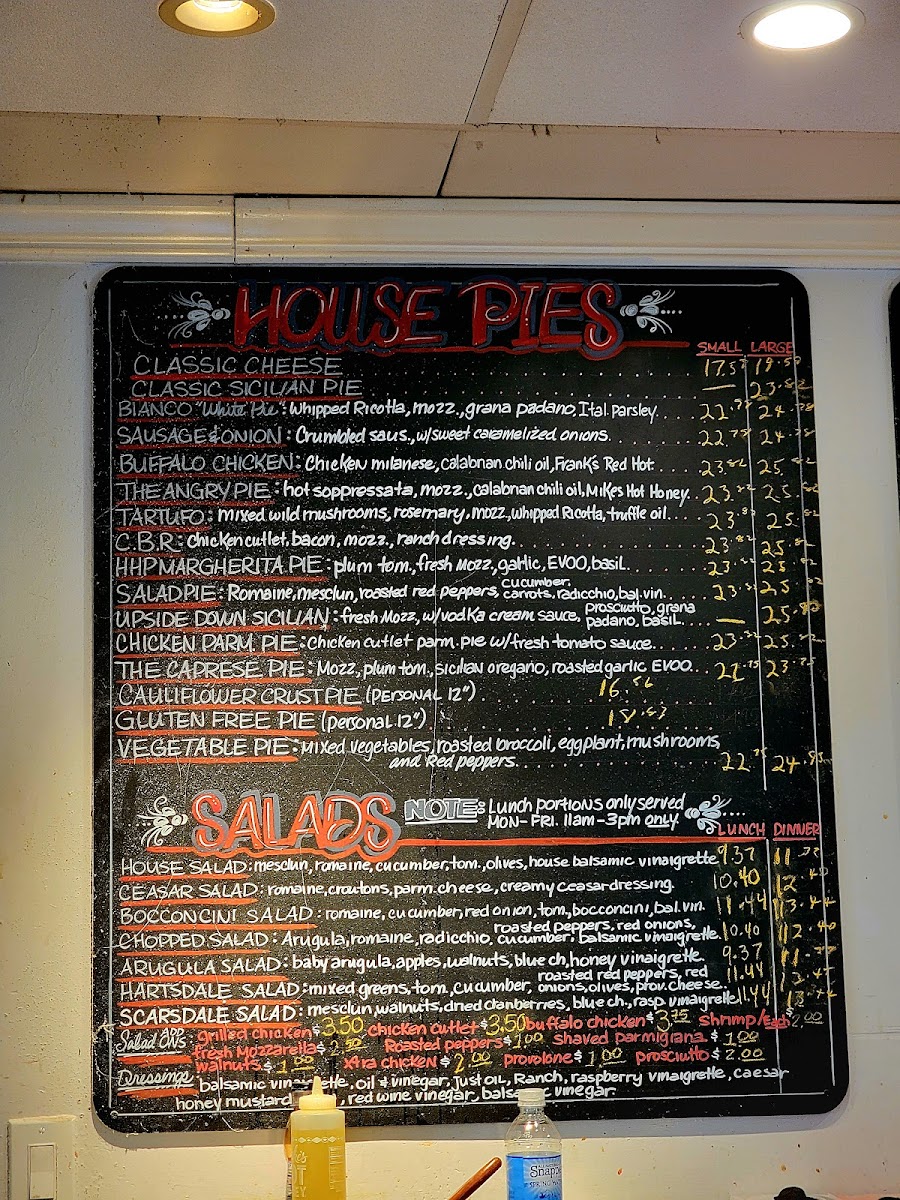 HOUSE PIES
SMALL LARGE
CLASSIC CHEESE 17.5
CLASSIC SICILIAN PIE — 23.82
BIANCO "White Pie": Whipped Ricotta, mozz., grana padano, Ital. Parsley. 22.75 24.78
SAUSAGE & ONION: Crumbled saus., w/sweet caramelized onions. 22.75 24
BUFFALO CHICKEN: Chicken milanese, calabrian chili oil, Frank's Red Hot 23.82 25.82
THE ANGRY PIE: hot soppressata, mozz., calabrian chili oil, Mikes Hot Honey. 23 25.82
TARTUFO: mixed wild mushrooms, rosemary, mozz, whipped Ricotta, truffle oil. 23.82 25.82
C.B.R: chicken cutlet, bacon, mozz., ranch dressing. 23.82 25.82
HHP MARGHERITA PIE: plum tom., fresh Mozz, garlic, EVOO, basil. 23 25.82
SALAD PIE: Romaine, mesclun, roasted red peppers, cucumber, carrots, radicchio, bal. vin. 23 25.82
UPSIDE DOWN SICILIAN: fresh Mozz, w/vodka cream sauce, prosciutto, grana padano, basil. — 25.82
CHICKEN PARM PIE: Chicken cutlet parm. pie w/fresh tomato sauce. 23 25
THE CAPRESE PIE: Mozz, plum tom., sicilian oregano, roasted garlic EVOO 23.75
CAULIFLOWER CRUST PIE (PERSONAL 12") 16.56
GLUTEN FREE PIE (personal 12")
VEGETABLE PIE: Mixed Vegetables, roasted broccoli, eggplant, mushrooms,
and Red peppers. 22.75 24
SALADS NOTE: Lunch portions only served
MON-FRI. 11am-3pm only
LUNCH DINNER
HOUSE SALAD: mesclun, romaine, cucumber, tom., olives, house balsamic vinaigrette 9.37 11
CEASAR SALAD: romaine, croutons, parm. cheese, creamy ceasar dressing. 10.40 12.40
BOCCONCINI SALAD: romaine, cucumber, red onion, tom., bocconcini, bal. vin. 11.44 13.44
roasted peppers, red onions,
CHOPPED SALAD: Arugula, romaine, radicchio, cucumber, balsamic vinaigrette. 10.40 12.40
ARUGULA SALAD: baby arugula, apples, walnuts, blue ch, honey vinaigrette 9.37 11
roasted red peppers, red
HARTSDALE SALAD: mixed greens, tom., cucumber, onions, olives, prov. cheese. 11.44
SCARSDALE SALAD: mesclun, walnuts, dried cranberries, blue ch., rasp. vinaigrette 11.44 13.44
Salad ADD ONS grilled chicken $3.50 chicken cutlet $3.50 buffalo chicken $3.75 shrimp/Each $2.00
fresh mozzarella $2.50 Roasted peppers $1.00 shaved parmigiana $1.00
walnuts $1.00 xtra chicken $2.00 provolone $1.00 prosciutto $2.00
Dressings balsamic oil & vinegar, just oil, Ranch, raspberry vinaigrette, caesar
honey mustard red wine vinegar, balsamic vinegar.
Snapple
SPRING